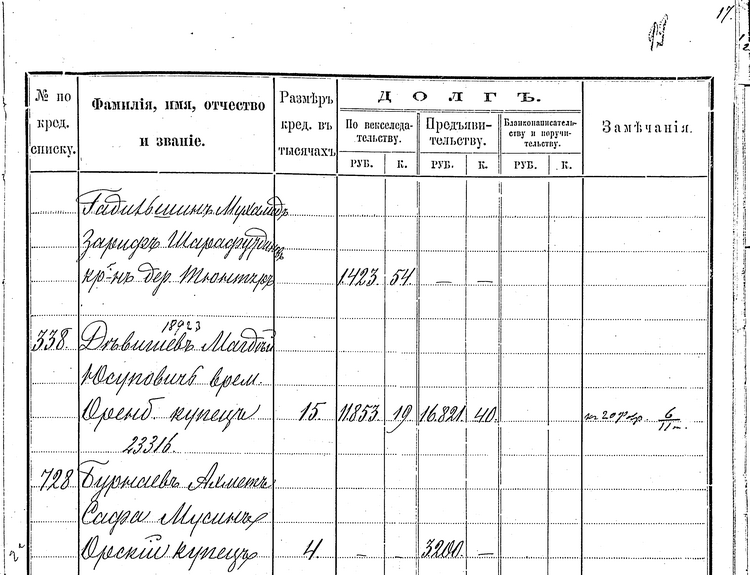 17
№ по кред. списку.
Фамилія, имя, отчество и званіе.
Размѣръ кред. въ тысячахъ
ДОЛГЪ.
По векселеда-тельству.
Предъяви-тельству.
Бланконадписатель-ству и поручи-тельству.
Замѣчанія.
РУБ. К. РУБ. К. РУБ. К.
Гадильшинъ Мухамадъ
Зарифъ Шарафутдиновъ
кр-нъ дер. Тюнтеръ 1423. 54. — —
18923
338. Дѣвишевъ Магдѣй
Юсуповичъ врем.
Оренб. купецъ 15. 11853. 19 16.821. 40. 6/11
23316.
728 Бурнаевъ Ахметъ
Сафа Мусинъ
Орскій купецъ 4. — — 3200. —